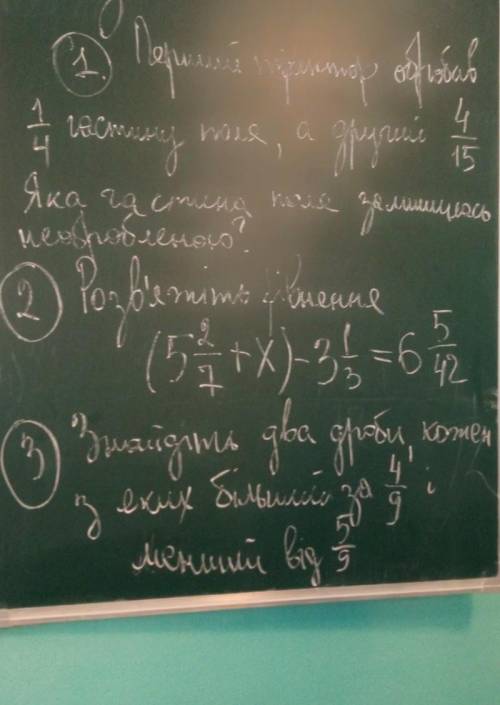 1. Перший трактор обробив
1/4 частину поля, а другий 4/15
Яка частина поля залишилась
необробленою?
2 Розв'яжіть рівняння
(5 2/7 + x) - 3 1/3 = 6 5/42
3 Знайдіть два дроби, кожен
з яких більший за 4/9 і
менший від 5/9